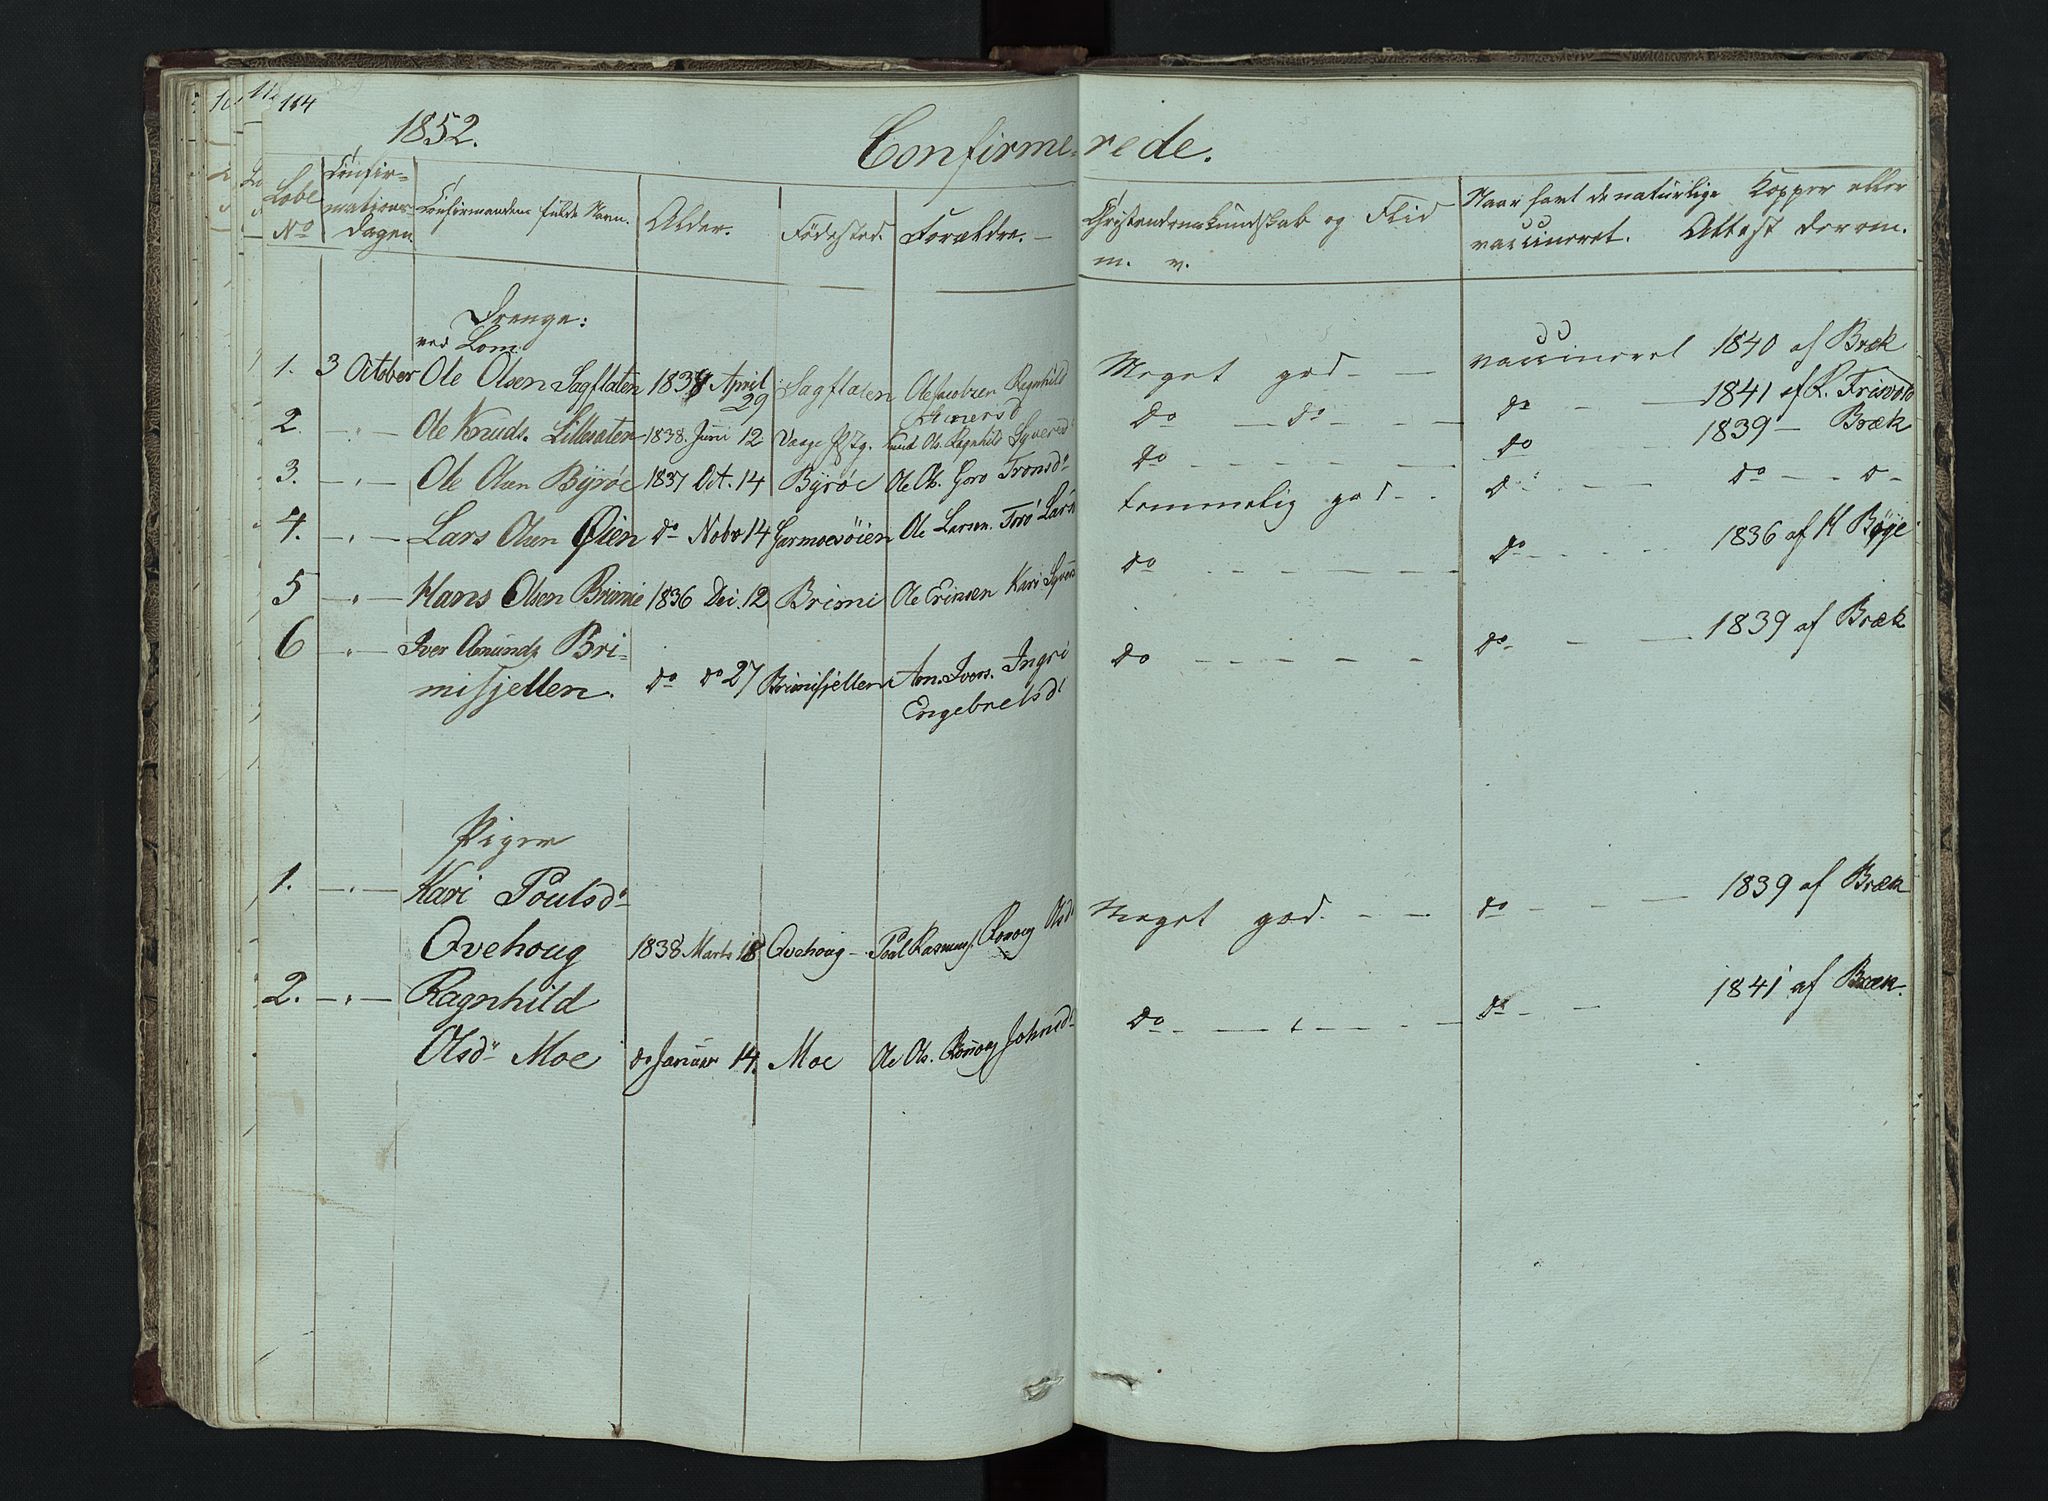 114
1852.
Confirme-rede.
Løbe No
Confirmations dagen
Confirmandens fulde Navn.
Alder.
Fødested.
Forældre.
Christendomskundskab og Flid m. v.
Naar havt de naturlige Kopper eller vaccineret. Attest derom.
Drenge:
ved Lom.
1. 3 October Ole Olsen Sagflaten 1838 April 29 Sagflaten Ole Jacobsen Ragnhild Meget god - - vaccineret 1840 af Bræk
2. - " - Ole Knuds. Lillesaten 1838. Juni 12 Vaage Pstg. Knud Ols. Ragnhild Syversd do - do - - do - - 1841 af R. Frisvold
3. - " - Ole Olsen Byrøe 1837 Oct. 14 Byrøe Ole Ols. Goro Tronsdr do - - - do - 1839 - Bræk
4. - " - Lars Olsen Øien do Novbr 14 Garmoesøien Ole Larsen. Toro Lars temmelig god - - do - - do - - do -
5 - " - Hans Olsen Brimie 1836 Dec. 12 Brimi Ole Erlnsen Kari Syvers do - - - do - - 1836 af H Bøye
6 - " - Iver Amunds Bri-
misjellen. do do 27 Brimisjellen Am. Ivers. Ingri Engebretsd do - - - do - - 1839 af Bræk
Piger
1. - " - Kari Poulsdr
Ovehoug 1838 Marts 18 Ovehoug - Poul Rasmus. Ronoug Olsd Meget god - - do - - 1839 af Bræk
2. - " - Ragnhild
Olsdr Moe do Januar 14. Moe Ole Ols. Ronoug Johnsd do - - - do - - 1841 af Bræk.